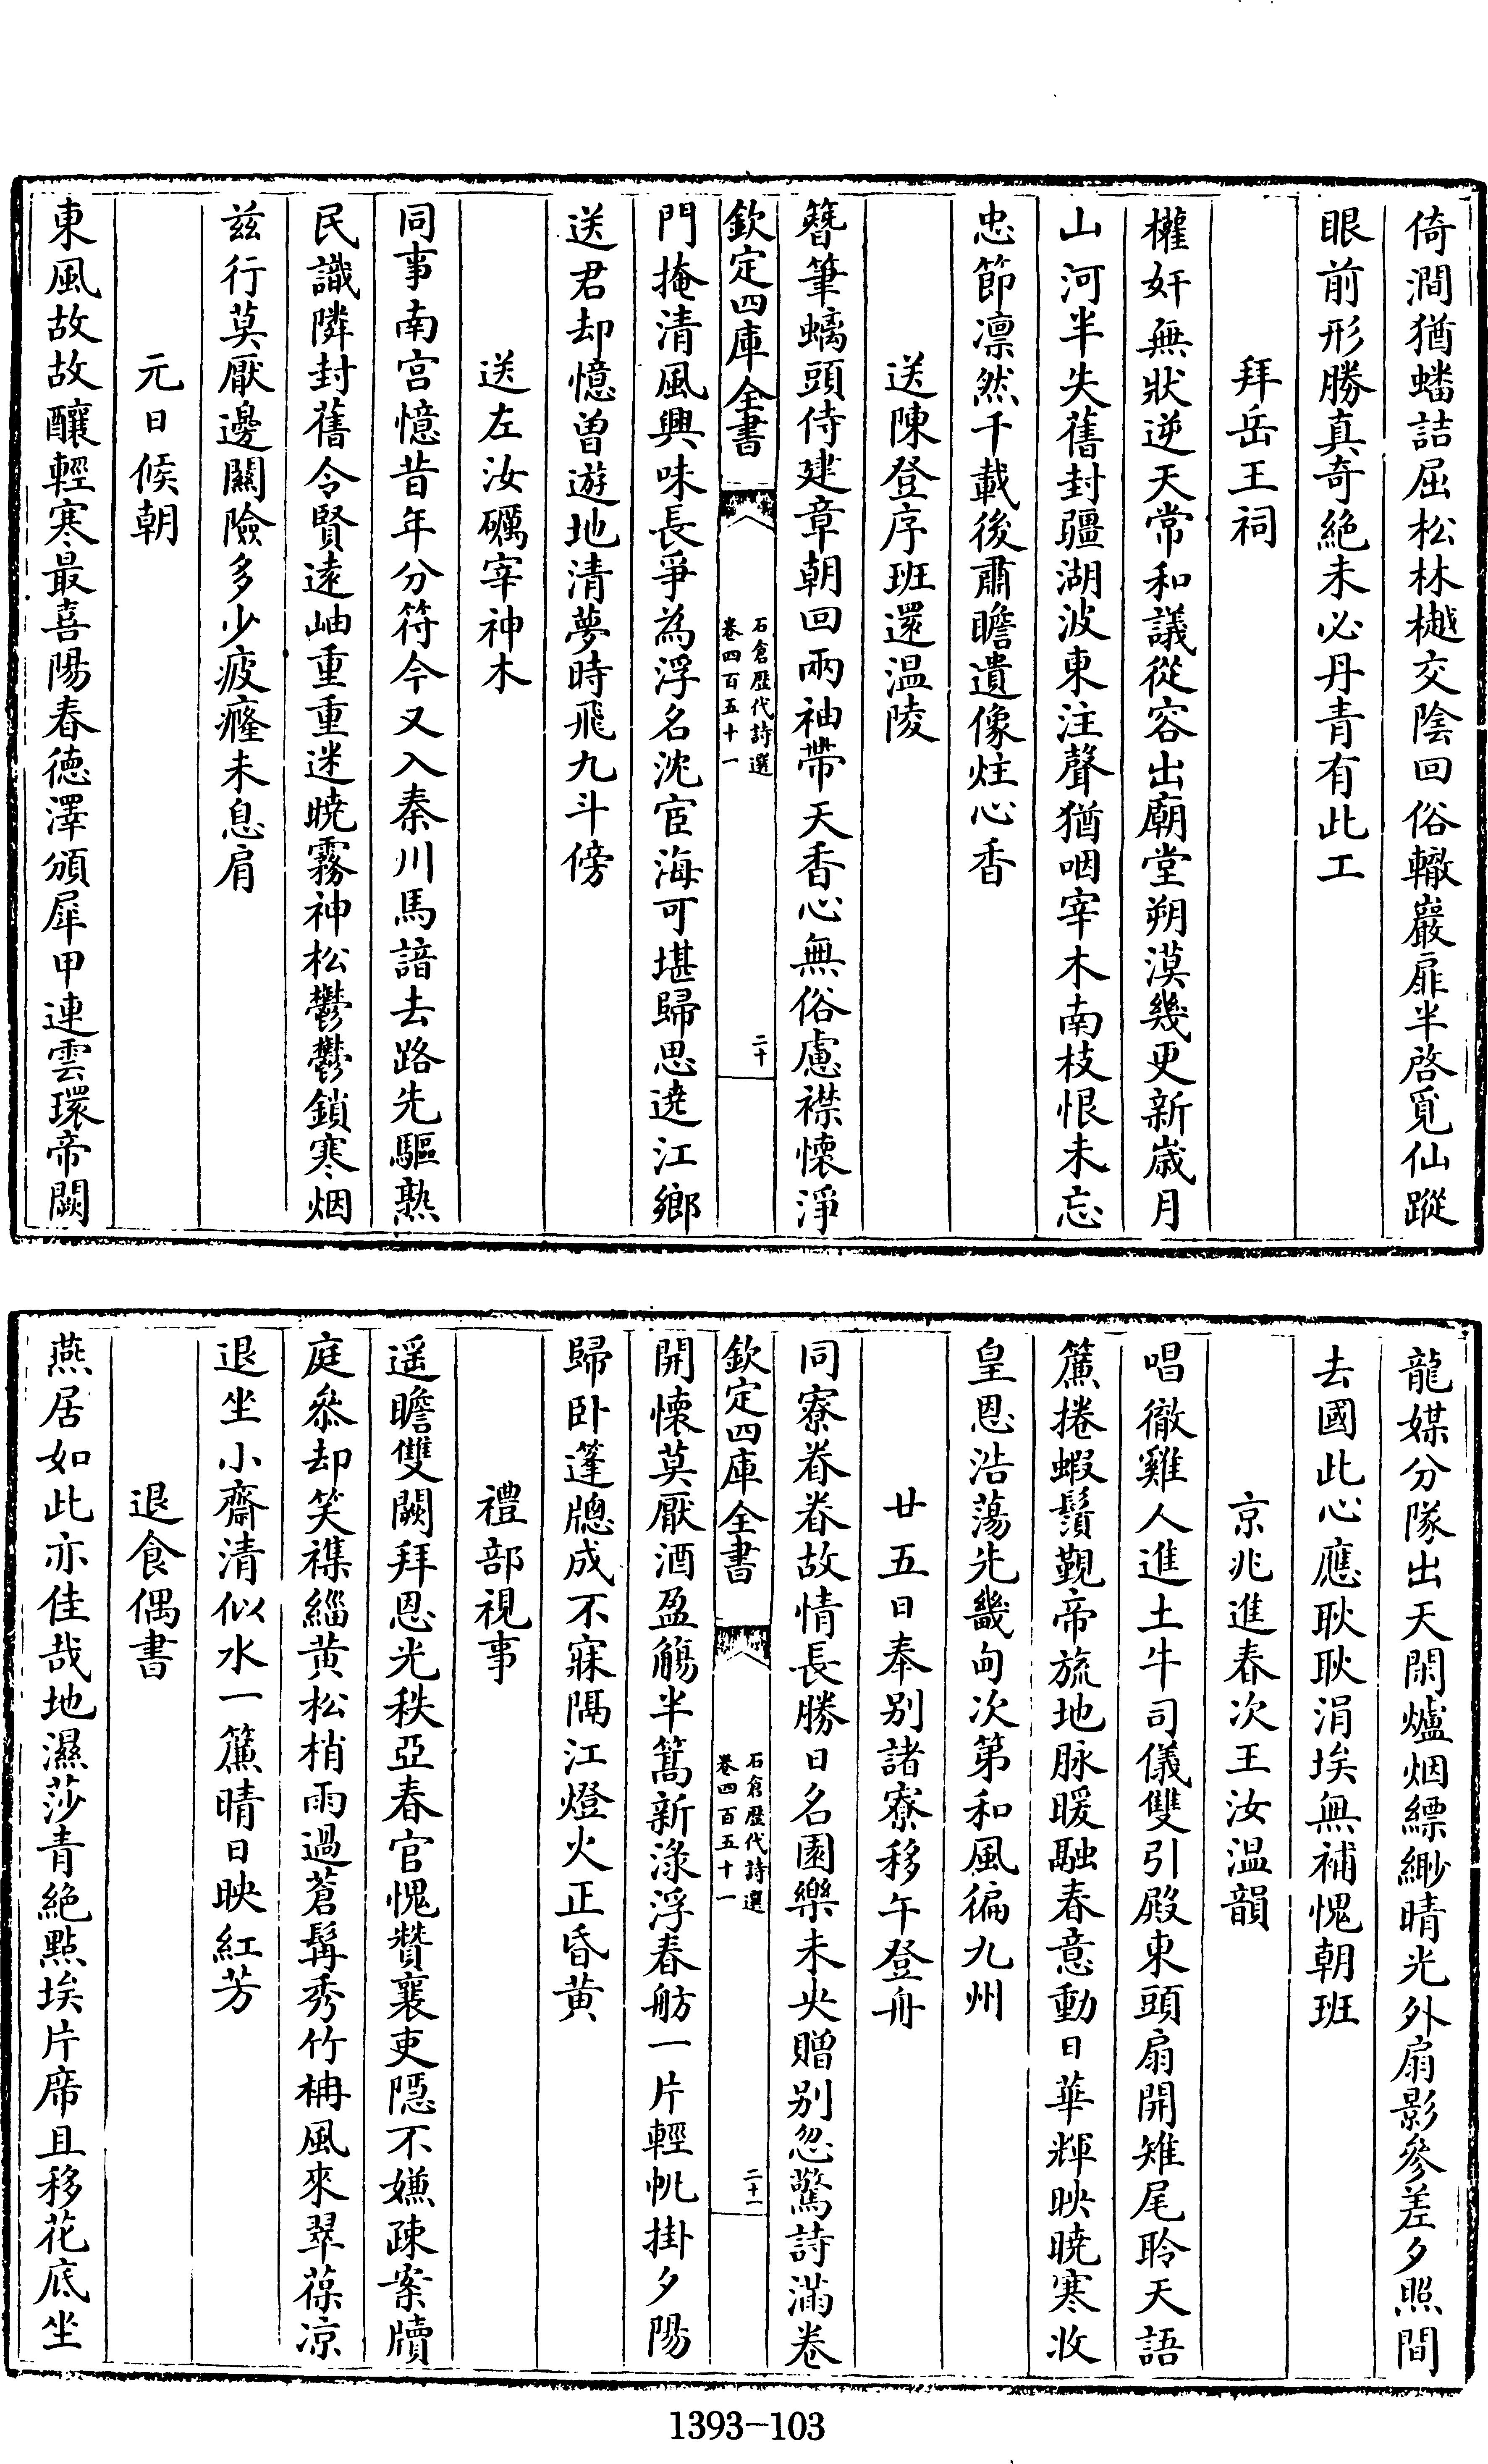 倚澗猶蟠詰屈松林樾交陰回俗轍巖扉半啓覓仙蹤
眼前形勝真奇絶未必丹青有此工
拜岳王祠
權奸無狀逆天常和議從容出廟堂朔漠幾更新歳月
山河半失舊封疆湖波東注聲猶咽宰木南枝恨未忘
忠節凛然千載後肅瞻遺像炷心香
送陳登序班還温陵
簪筆螭頭侍建章朝回兩袖帶天香心無俗慮襟懷淨
欽定四庫全書
石倉歴代詩選
卷四百五十一
二十
門掩清風興味長爭為浮名沈宦海可堪歸思遶江鄉
送君却憶曽遊地清夢時飛九斗傍
送左汝礪宰神木
同事南宫憶昔年分符今又入秦川馬諳去路先驅熟
民識隣封舊令賢逺岫重重迷曉霧神松鬱鬱鎖寒烟
兹行莫厭邊關險多少疲癃未息肩
元日候朝
東風故故釀輕寒最喜陽春德澤頒犀甲連雲環帝闕
龍媒分隊出天閑爐烟縹緲晴光外扇影參差夕照間
去國此心應耿耿涓埃無補愧朝班
京兆進春次王汝温韻
唱徹雞人進土牛司儀雙引殿東頭扇開雉尾聆天語
簾捲蝦鬚覲帝旒地脉暖融春意動日華輝映曉寒收
皇恩浩蕩先畿甸次第和風徧九州
廿五日奉别諸寮移午登舟
同寮眷眷故情長勝日名園樂未央贈别忽驚詩滿卷
欽定四庫全書
石倉歴代詩選
卷四百五十一
二十一
開懷莫厭酒盈觴半篙新淥浮春舫一片輕帆掛夕陽
歸卧篷牕成不寐隔江燈火正昏黄
禮部視事
遥瞻雙闕拜恩光秩亞春官愧贊襄吏隠不嫌疎案牘
庭叅却笑襍緇黄松梢雨過蒼髯秀竹柟風來翠葆凉
退坐小齋清似水一簾晴日映紅芳
退食偶書
燕居如此亦佳哉地濕莎青絶點埃片席且移花底坐
1393-103